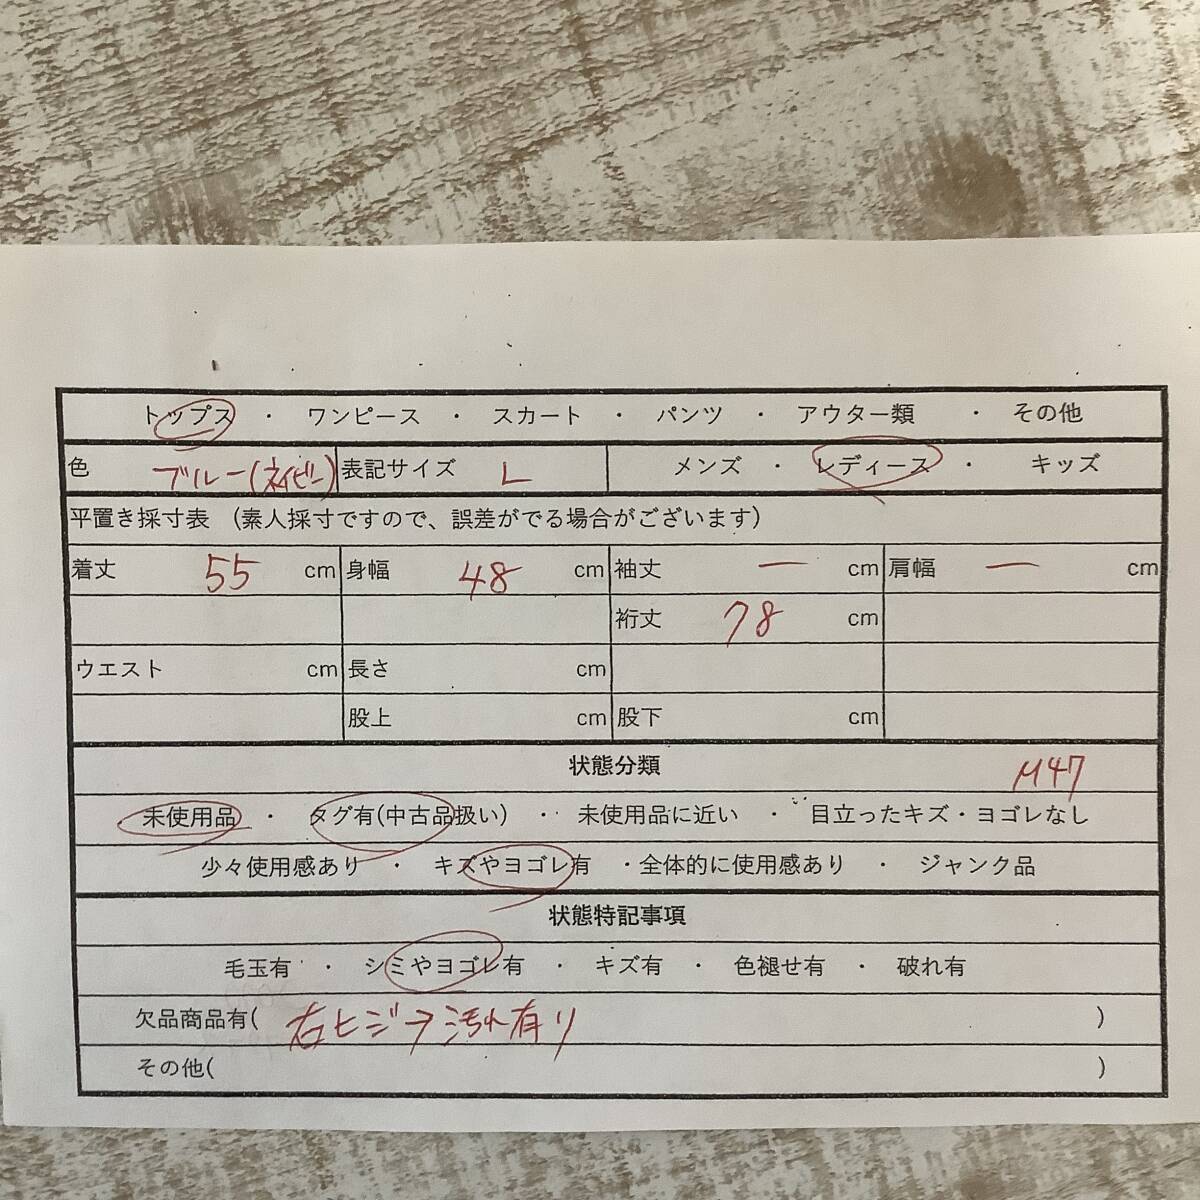 トップス ・ ワンピース ・ スカート ・ パンツ ・ アウター類 ・ その他
色 ブルー(ネイビー) 表記サイズ L メンズ ・ レディース ・ キッズ
平置き採寸表 (素人採寸ですので、誤差がでる場合がございます)
着丈 55 cm 身幅 48 cm 袖丈 ー cm 肩幅 ー cm
裄丈 78 cm
ウエスト cm 長さ cm
股上 cm 股下 cm
状態分類 M47
未使用品 ・ タグ有(中古品扱い) ・ 未使用品に近い ・ 目立ったキズ・ヨゴレなし
少々使用感あり ・ キズやヨゴレ有 ・全体的に使用感あり ・ ジャンク品
状態特記事項
毛玉有 ・ シミやヨゴレ有 ・ キズ有 ・ 色褪せ有 ・ 破れ有
欠品商品有( 右ヒジ→汚れ有り )
その他( )